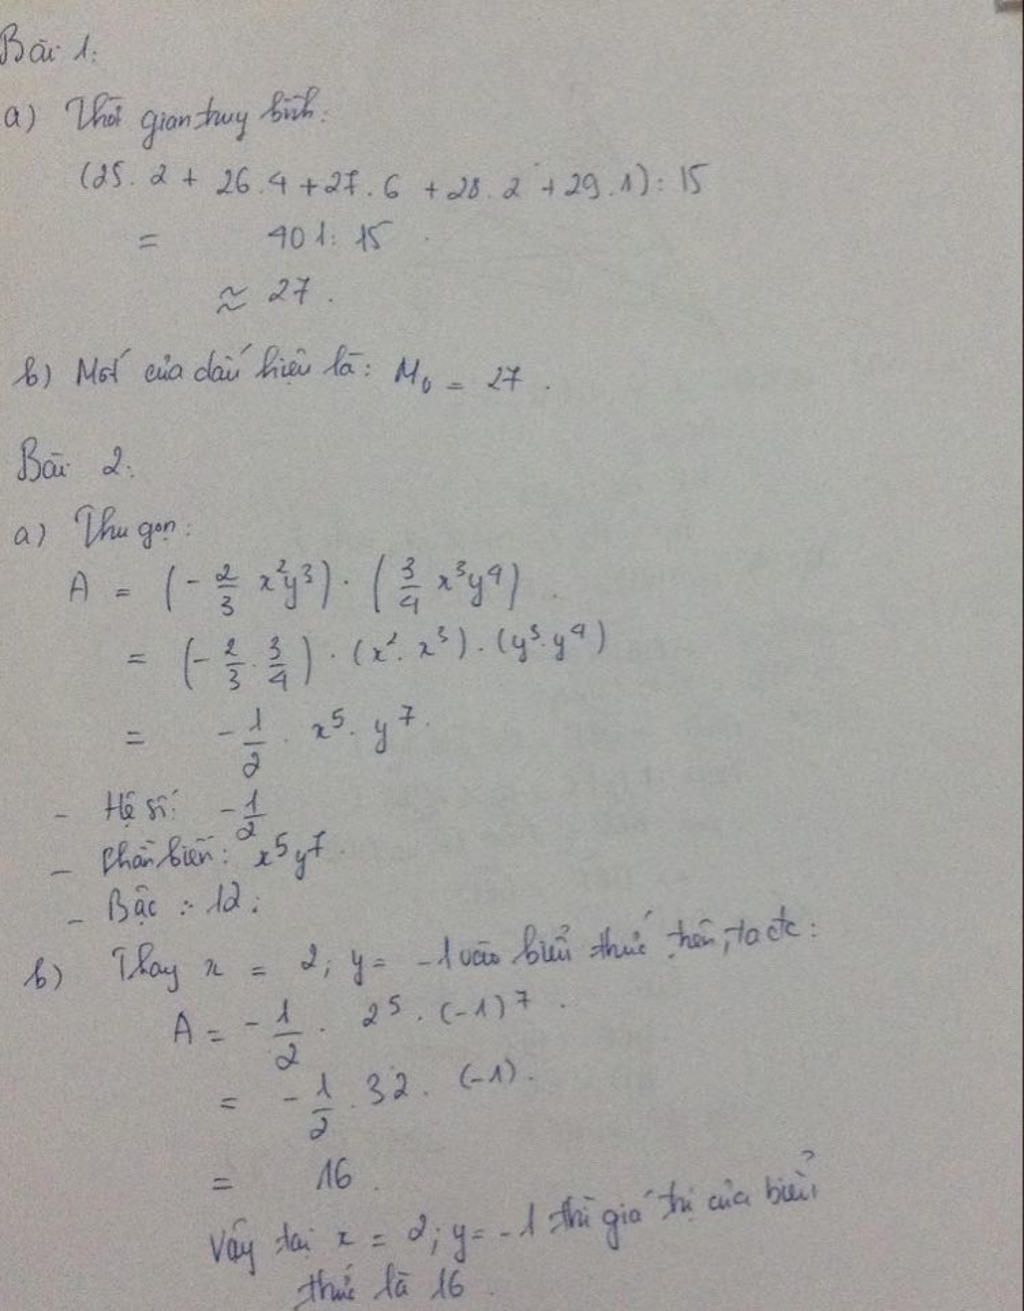 Bài 1:
a) Thời gian truy bình:
(25. 2 + 26.4 + 27. 6 + 28. 2 + 29.1) : 15
= 401 : 15
≈ 27.
b) Mốt của dấu hiệu là: M₀ = 27.
Bài 2:
a) Thu gọn:
A = (- 2/3 x²y³) . (3/4 x³y⁴)
= (- 2/3 . 3/4) . (x² . x³) . (y³ . y⁴)
= - 1/2 . x⁵ . y⁷.
- Hệ số: - 1/2
- Phần biến: x⁵y⁷.
- Bậc : 12.
b) Thay x = 2; y = -1 vào biểu thức trên, ta đc:
A = - 1/2 . 2⁵ . (-1)⁷.
= - 1/2 . 32 . (-1).
= 16.
Vậy tại x = 2; y = -1 thì giá trị của biểu
thức là 16.